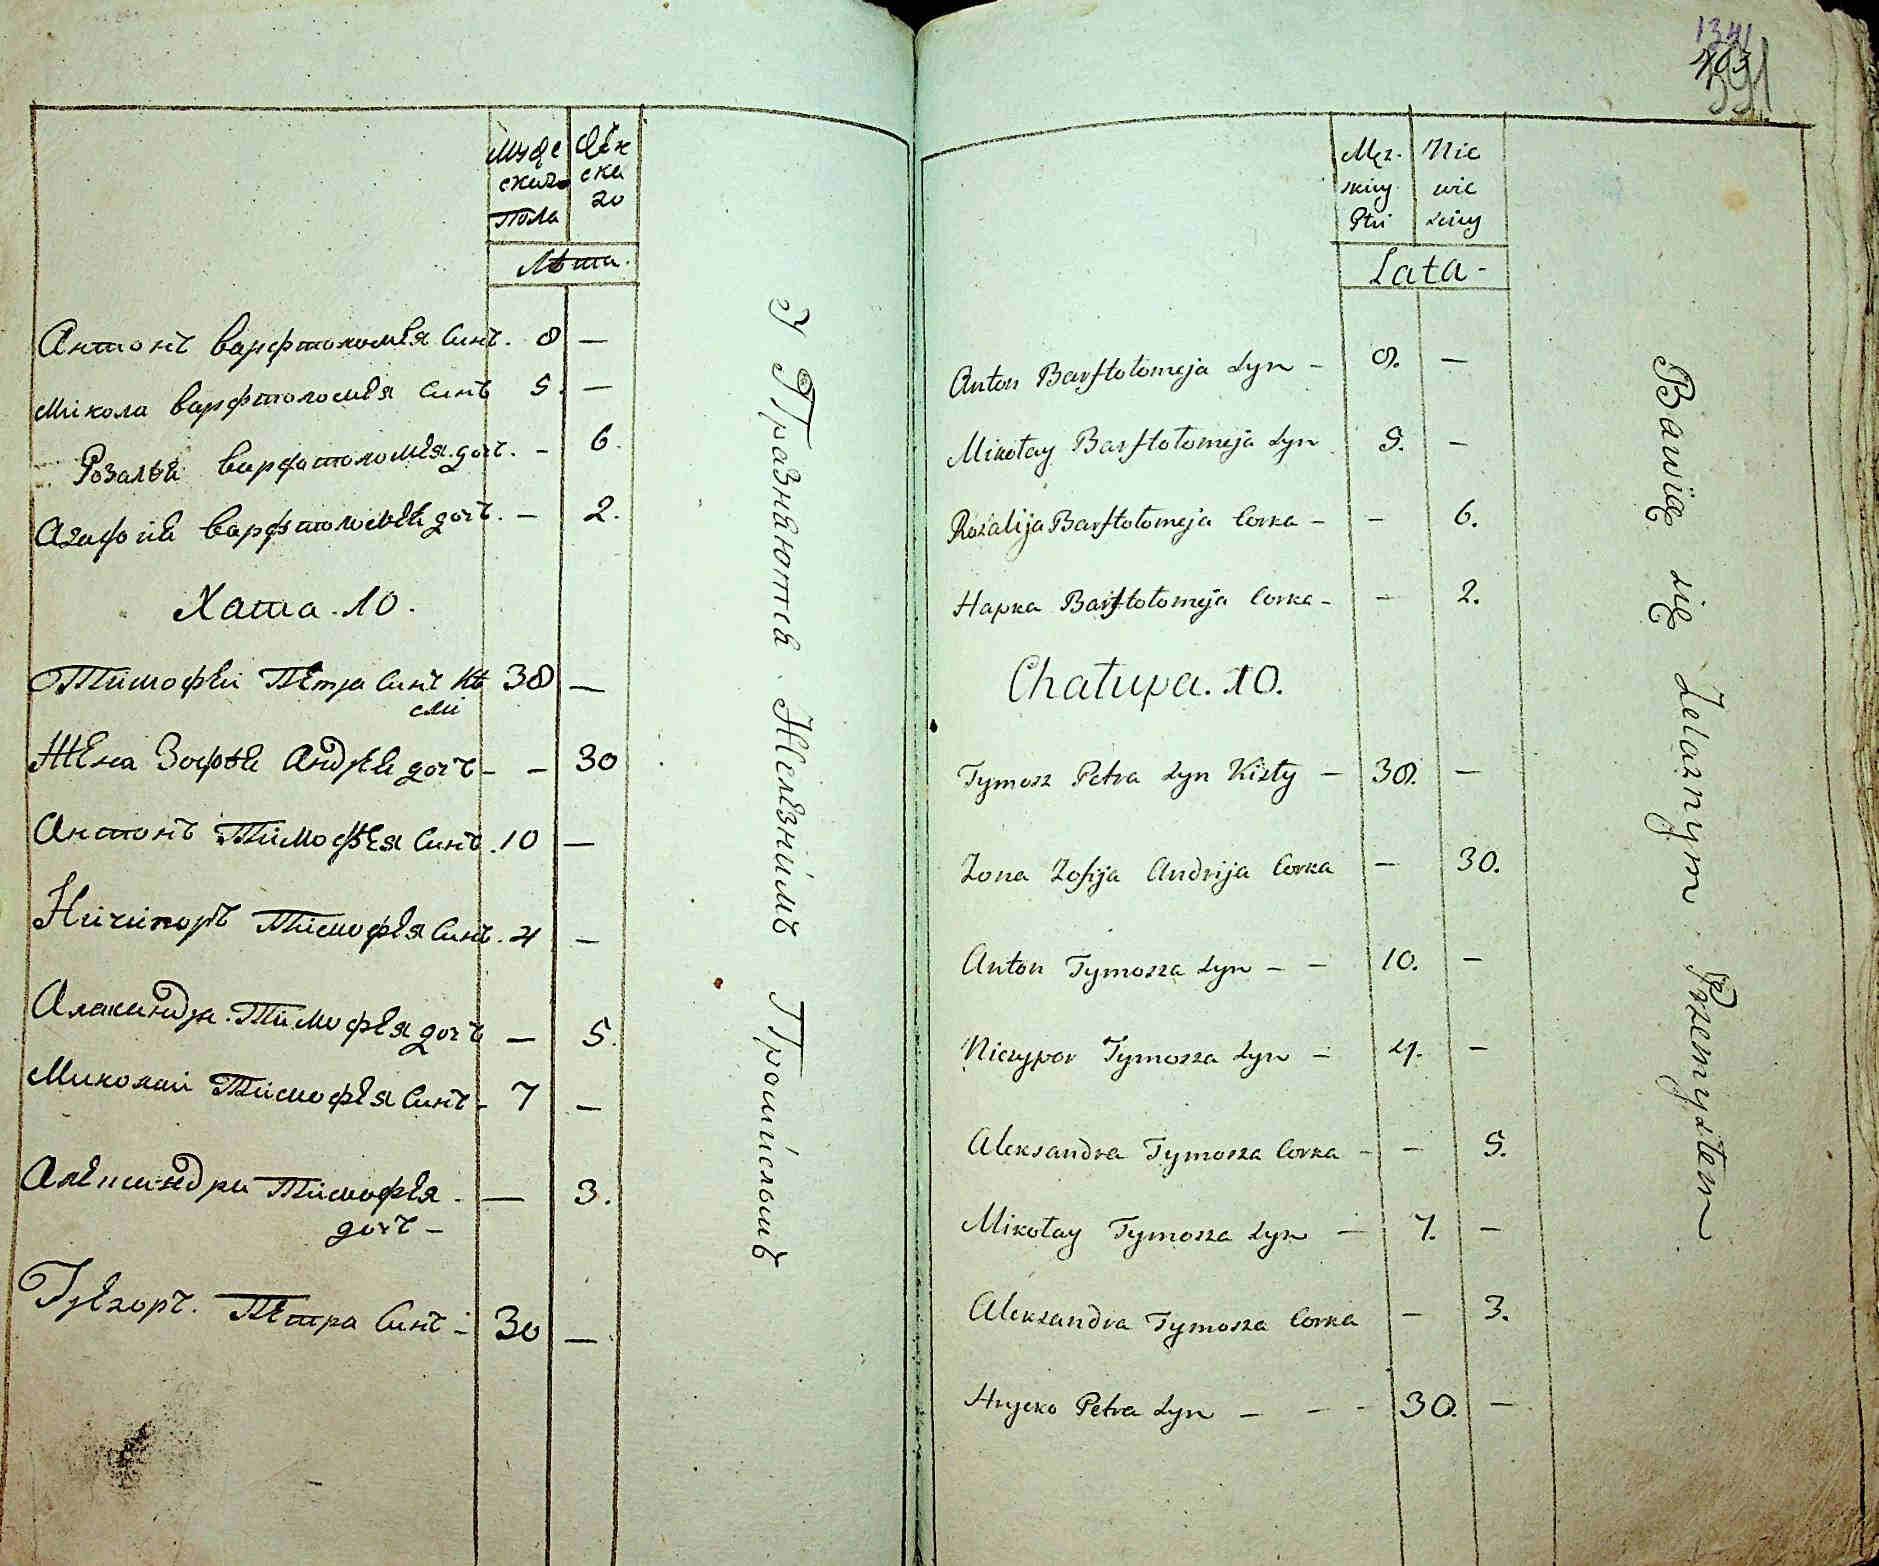 Мужс Жѣн
скаго ска
Пола го
Лѣта.
Антонъ Варфтоломѣя Синъ. 8 —
Микола Варфтоломѣя Синъ 5. —
Розалѣя Варфтоломѣя дочъ. — 6.
Агафия Варфтоломѣя дочъ. — 2.
Хата. 10.
Тимофѣй Пѣтра Синъ Кѣ 38 —
сли
Жѣна Зофѣя Андрѣя дочъ — — 30
Антонъ Тимофѣя Синъ. 10 —
Ничипоръ Тимофѣя Синъ. 4 —
Тимофѣя дочъ — 5.
Миколай Тимофѣя Синъ — 7 —
Тимофѣя — — 3.
дочъ —
Грѣгоръ. Пѣтра Синъ — 30 —
У Пражняются Желѣзнимъ Промисломъ
1341
Męz. Nie
skiey wie
Płci sciey
Lata -
Anton Barftołomeja Syn — 8. —
Mikołay Barftołomeja Syn 5. —
Rozalija Barftołomeja Corka — — 6.
Hapka Barftołomeja Corka — — 2.
Chałupa. 10.
Tymosz Petra Syn Kisły — 38. —
Zona Zofija Andrija Corka — 30.
Anton Tymosza Syn — — 10. —
Niczypor Tymosza Syn — 4. —
Aleksandra Tymosza Corka — — 5.
Mikołay Tymosza Syn — 7. —
Aleksandra Tymosza Corka — 3.
Hryćko Petra Syn — — — 30. —
Bawią się Zelaznym Przemysłem